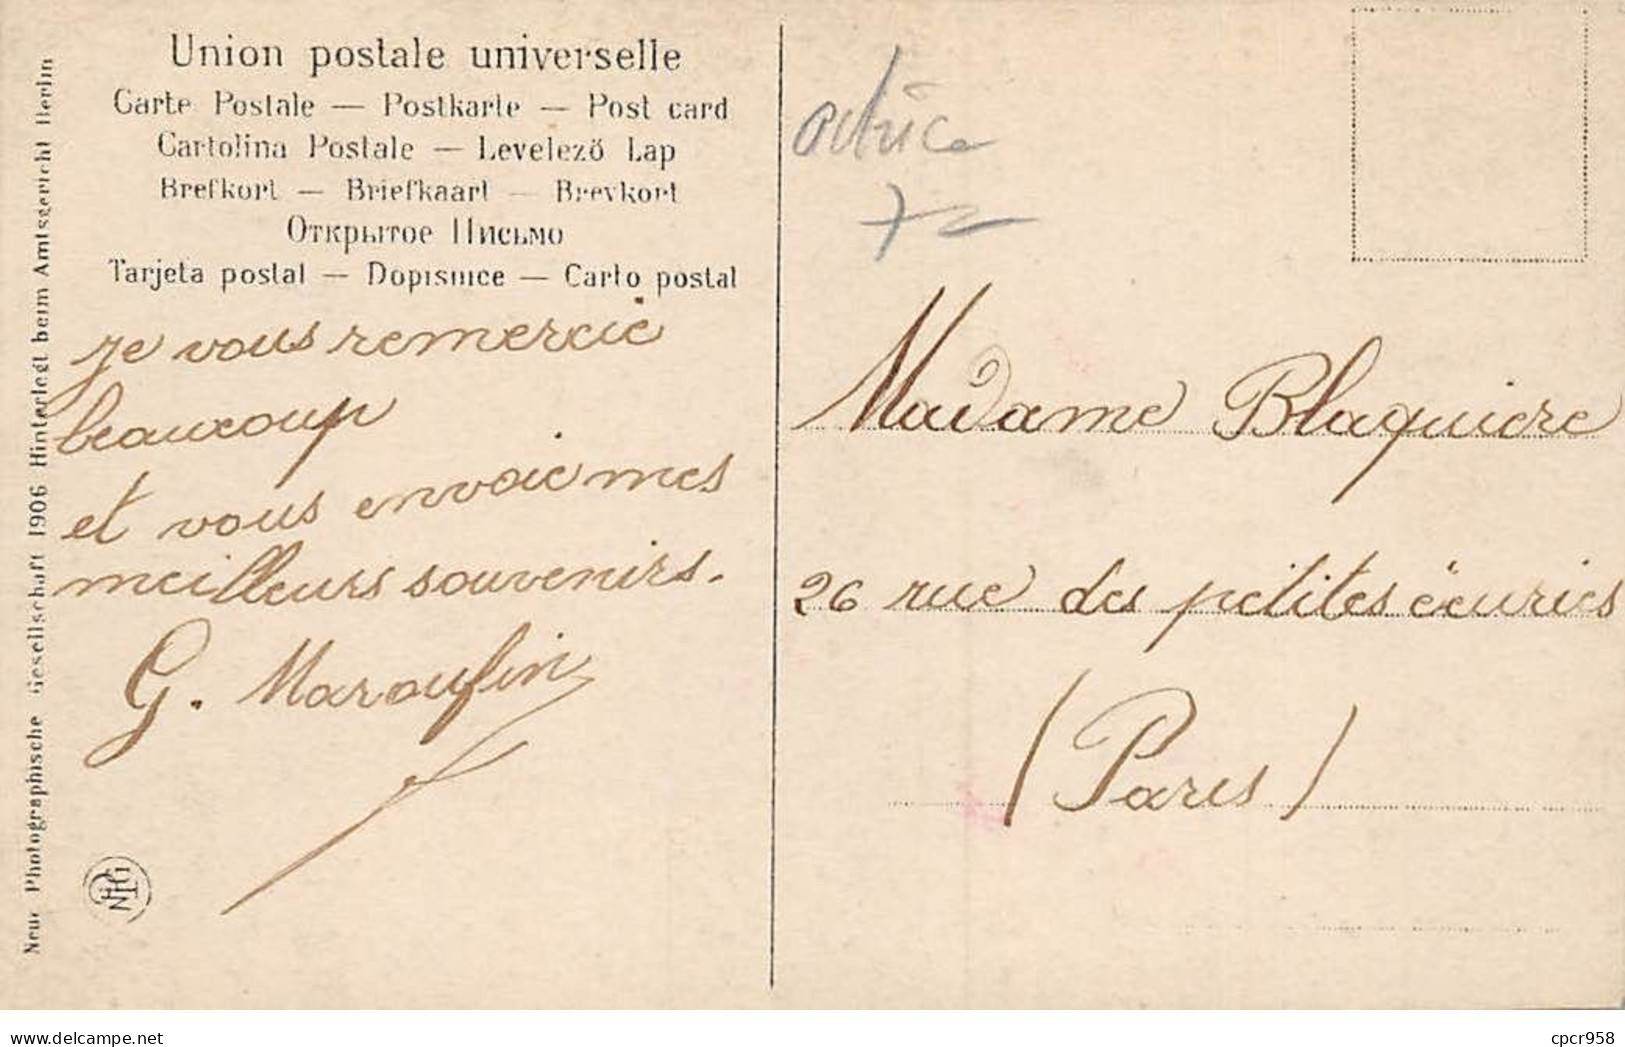 Union postale universelle
Carte Postale — Postkarte — Post card
Cartolina Postale — Levelező Lap
Brefkort — Briefkaart — Brevkort
Открытое Письмо
Tarjeta postal — Dopisnice — Carto postal
je vous remercie
beaucoup
et vous envoie mes
meilleurs souvenirs.
G. Maroufin
Neue Photographische Gesellschaft 1906 Hinterlegt beim Amtsgericht Berlin
NPG
actrice
7
Madame Blaquiere
26 rue des petites écuries
(Paris)
delcampe.net
cpcr958